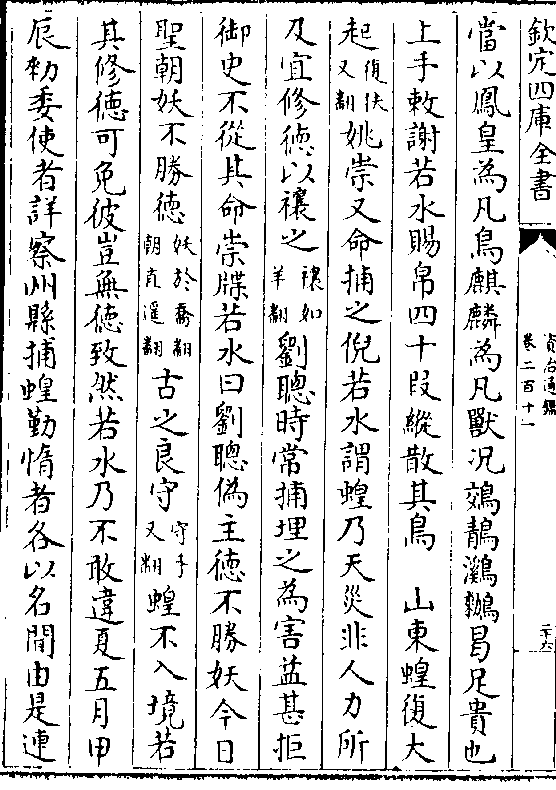 欽定四庫全書
資治通鑑
卷二百十一
二十六
當以鳳皇為凡鳥麒麟為凡獸况鵁鶄鸂鶒曷足貴也
上手敕謝若水賜帛四十段縱散其鳥　山東蝗復大
起復扶又翻姚崇又命捕之倪若水謂蝗乃天災非人力所
及宜修德以禳之禳如羊翻劉聰時常捕埋之為害益甚拒
御史不從其命崇牒若水曰劉聰偽主德不勝妖今日
聖朝妖不勝德妖於喬翻朝直遥翻古之良守守手又翻蝗不入境若
其修德可免彼豈無德致然若水乃不敢違夏五月甲
辰勑委使者詳察州縣捕蝗勤惰者各以名聞由是連